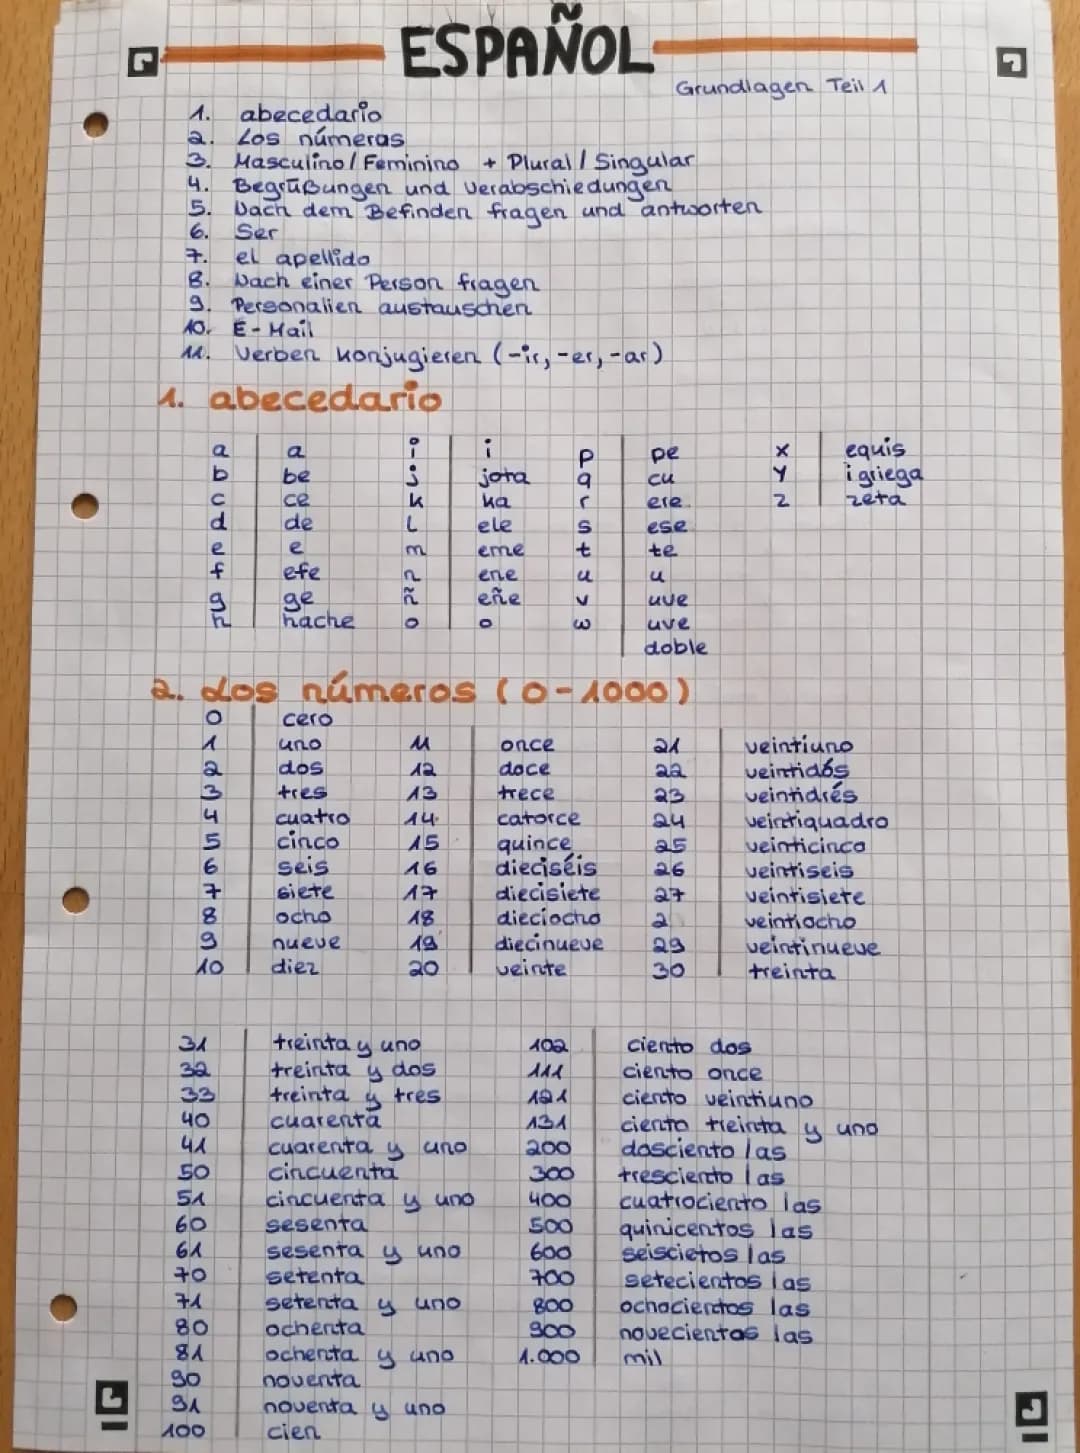 ESPAÑOL
Grundlagen Teil 1
1. abecedario
2. Los números
3. Masculino / Feminino + Plural / Singular
4. Begrüßungen und Verabschiedungen
5. Nach dem Befinden fragen und antworten
6. Ser
7. el apellido
8. Nach einer Person fragen
9. Personalien austauschen
10. E-Mail
11. Verben konjugieren (-ir, -er, -ar)
1. abecedario
a a i i p pe x equis
b be j jota q cu y i griega
c ce k ka r ere z zeta
d de l ele s ese
e e m eme t te
f efe n ene u u
g ge ñ eñe v uve
h hache o o w uve
doble
2. Los números (0-1000)
0 cero
1 uno 11 once 21 veintiuno
2 dos 12 doce 22 veintidós
3 tres 13 trece 23 veintidrés
4 cuatro 14 catorce 24 veintiquadro
5 cinco 15 quince 25 veinticinco
6 seis 16 dieciséis 26 veintiseis
7 siete 17 diecisiete 27 veintisiete
8 ocho 18 dieciocho 2 veintiocho
9 nueve 19 diecinueve 29 veintinueve
10 diez 20 veinte 30 treinta
31 treinta y uno 102 ciento dos
32 treinta y dos 111 ciento once
33 treinta y tres 121 ciento veintiuno
40 cuarenta 131 ciento treinta y uno
41 cuarenta y uno 200 dosciento /as
50 cincuenta 300 tresciento /as
51 cincuenta y uno 400 cuatrociento /as
60 sesenta 500 quinicentos /as
61 sesenta y uno 600 seiscietos /as
70 setenta 700 setecientos /as
71 setenta y uno 800 ochocientos /as
80 ochenta 900 novecientos /as
81 ochenta y uno 1.000 mil
90 noventa
91 noventa y uno
100 cien